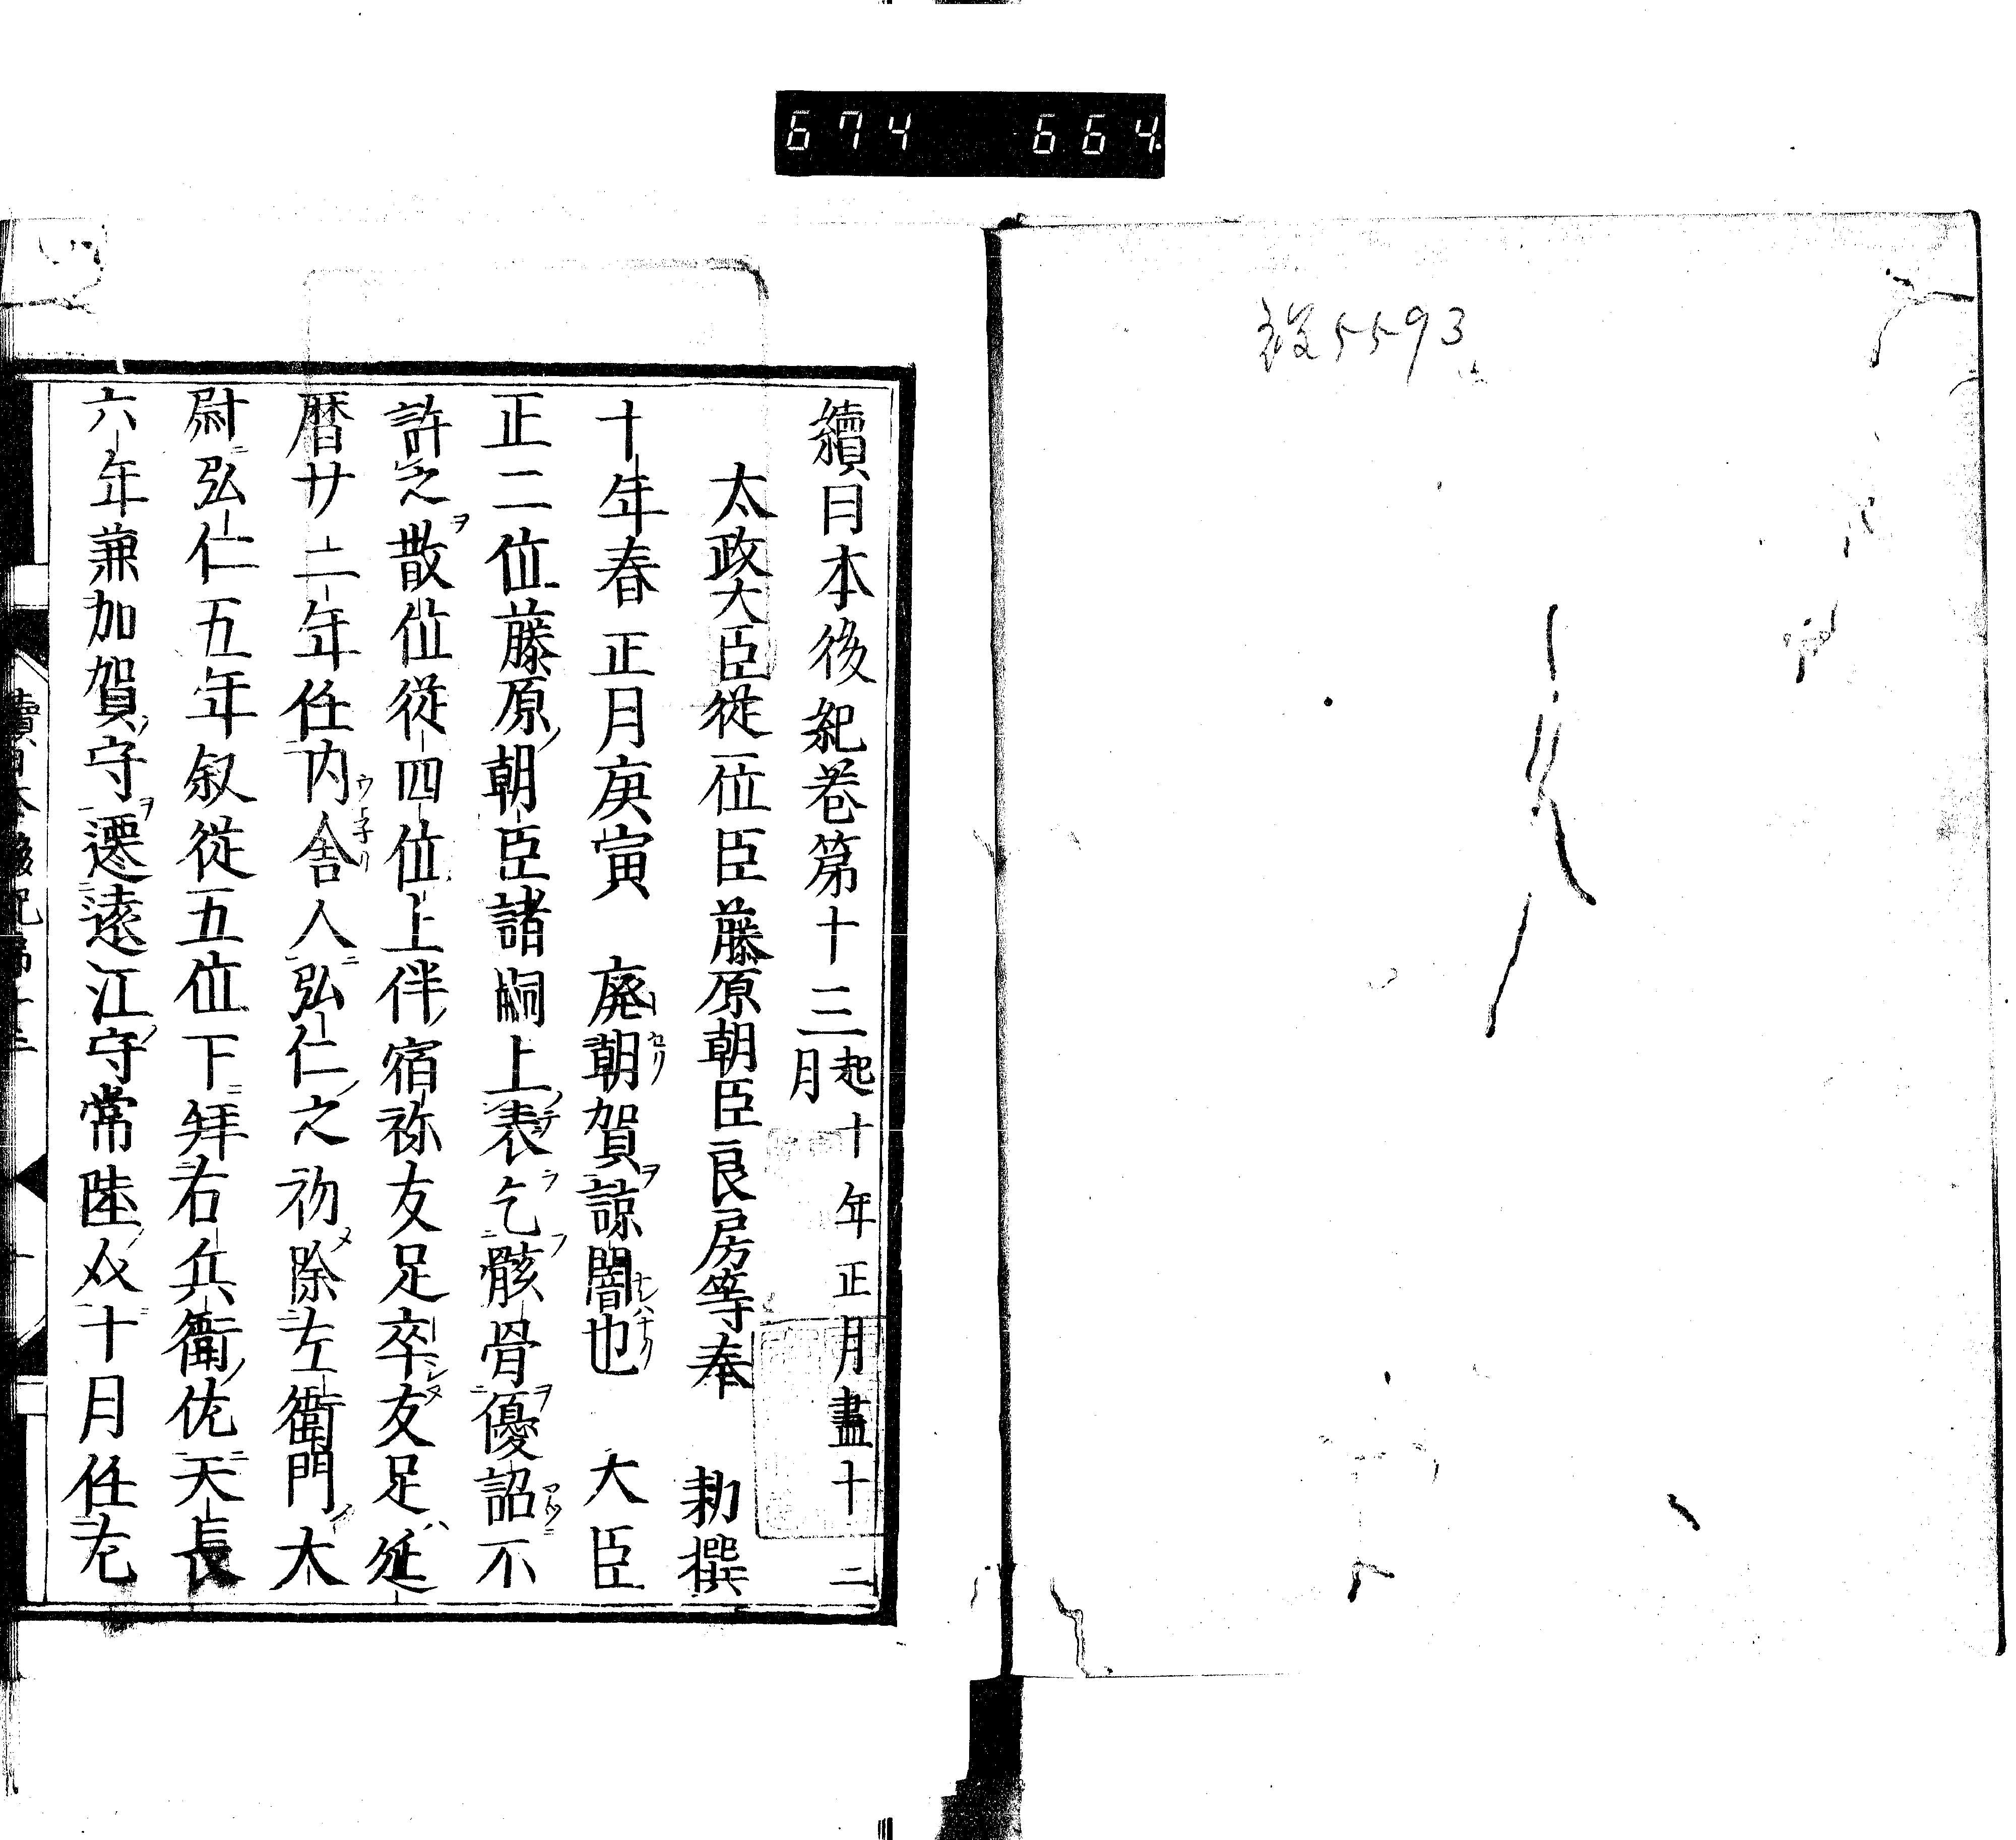 674 664
5593
續日本後紀巻第十三 起十年正月盡十二月
太政大臣從一位臣藤原朝臣良房等奉 勅撰
十年春正月庚寅 廢朝賀諒闇也 大臣
正二位藤原朝臣諸嗣上表乞骸骨優詔不
許之散位從四位上伴宿祢友足卒友足延
暦廿二年任内舎人弘仁之初除左衛門大
尉弘仁五年叙從五位下拜右兵衛佐天長
六年兼加賀守遷遠江守常陸介十月任左